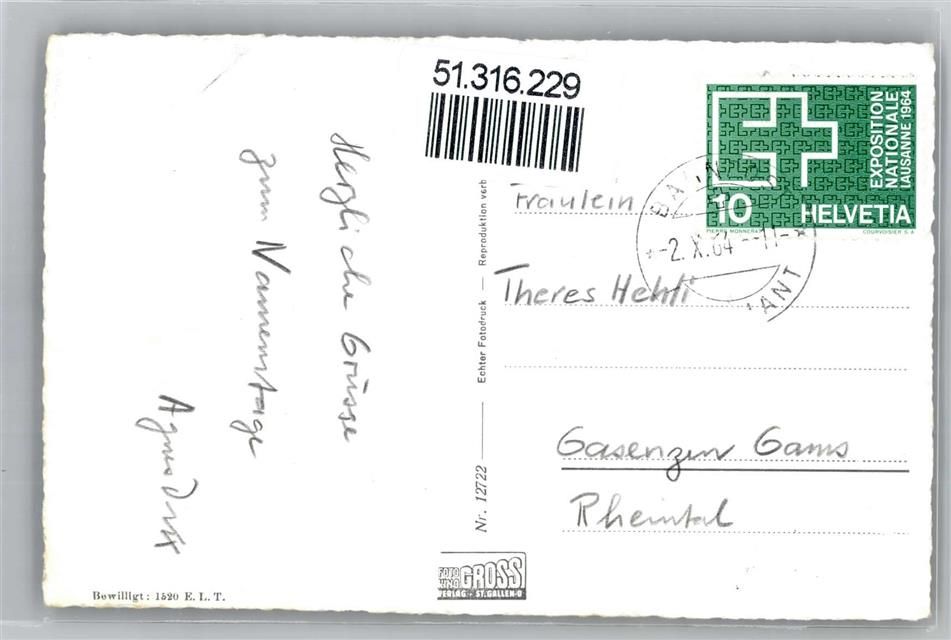 51.316.229
EXPOSITION
NATIONALE
LAUSANNE 1964
10 HELVETIA
PIERRE MONNERAT COURVOISIER S.A.
-2.X.64--11-
Herzliche Grüsse
zum Namenstage
Agnes
Fräulein
Theres Hehli
Gasenzen Gams
Rheintal
Nr. 12722 — Echter Fotodruck — Reproduktion verb
FOTO
UND GROSS
VERLAG - ST. GALLEN-O
Bewilligt: 1520 E. L. T.